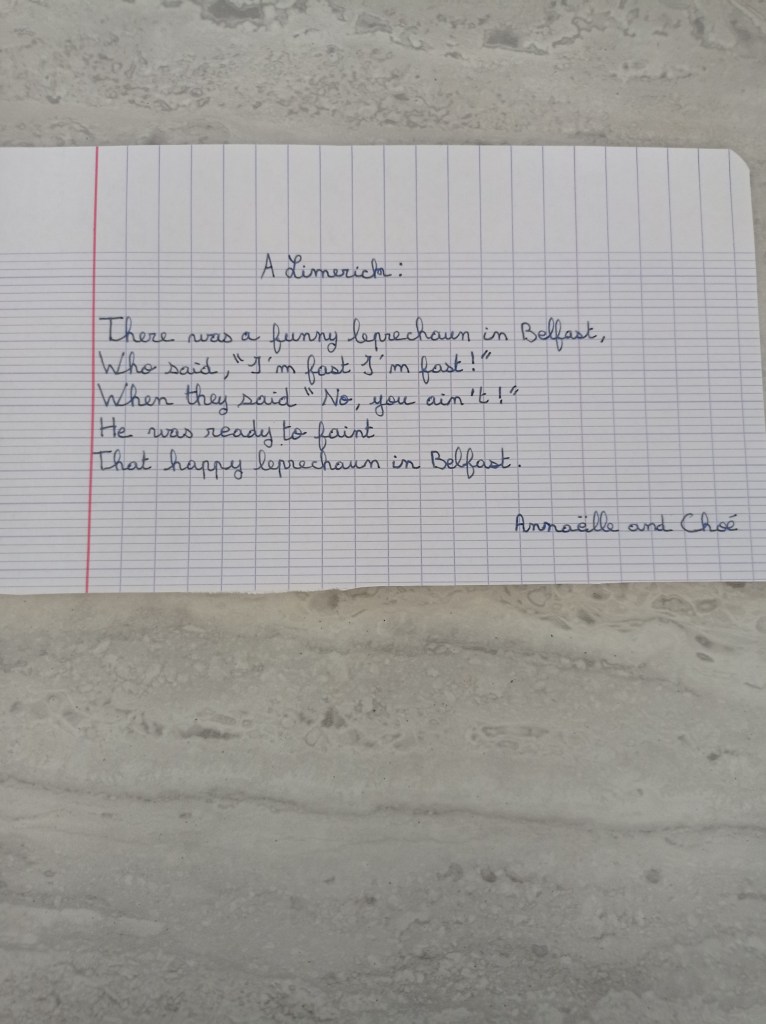 A Limerick:
There was a funny leprechaun in Belfast,
Who said, "I'm fast I'm fast!"
When they said "No, you ain't!"
He was ready to faint
That happy leprechaun in Belfast.
Annaëlle and Choé